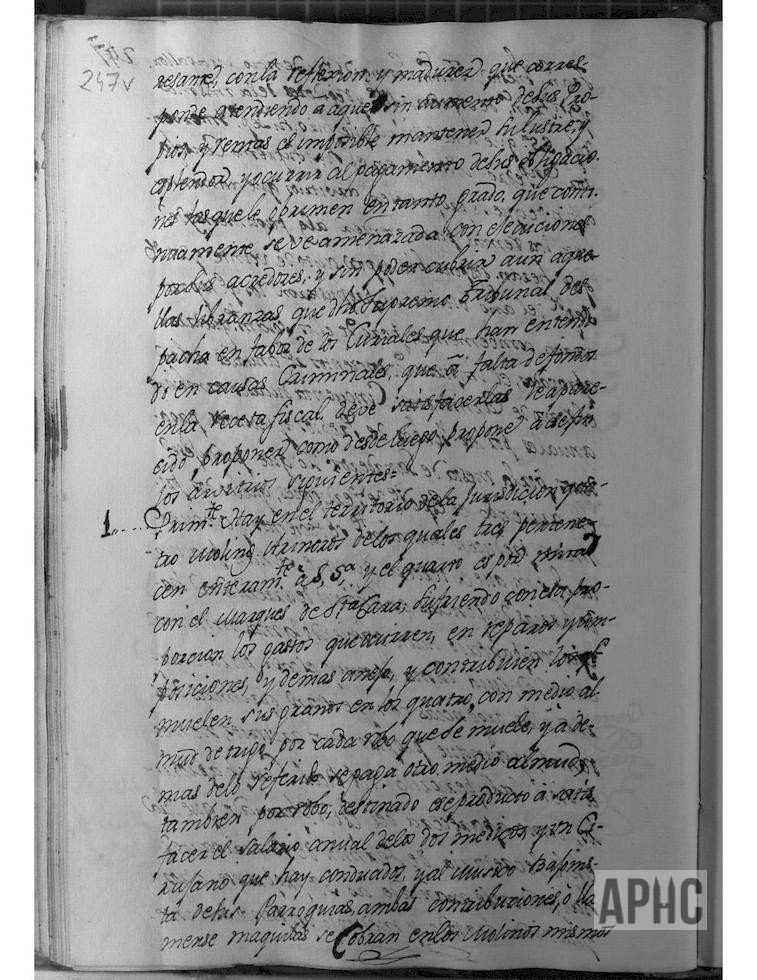 247
247v
resante, con la reflexion, y madurez que corres-
ponde atendiendo a aque sin aumento de sus Pro-
pios, y rentas es imposible mantener su lustre, y
esplendor, y ocurrir al pagamento de sus obligacio-
nes las que le oprimen en tanto grado, que conti-
nuamente se ve amenazada con execuciones
por sus acredores, y sin poder cubrir aun aque-
llas libranzas que dho Supremo Tribunal des-
pacha en fabor de los Curiales que han entendi-
do en causas Criminales, que â falta de fondos
en la receta fiscal deve satisfacerlas le a pare-
cido proponer como desde luego propone a este fin
los arvitrios siguientes=
1.....Prim.te Hay en el territorio de la Jurisdicion qua-
tro Molinos Arineros de los quales tres pertene-
cen enteram.te à S, S.a y el quarto es por mitad
con el Marques de S.ta Cara, sufriendo con esta pro-
porcion los gastos que ocurren, en reparos y im-
posiciones, y demas anejo, y contribuien los q.e
muelen sus granos en los quatro, con medio al-
mud de trigo por cada robo que se muele, y a de-
mas de lo referido se paga otro medio almud,
tambien por robo, destinado ese producto à satis-
facer el salario anual de los dos medicos y un Ci-
rujano que hay conducidos, y al musico Bajonis-
ta de sus Parroquias, ambas contribuciones, ò lla-
mense maquilas se Cobran en los Molinos mismos
APHC